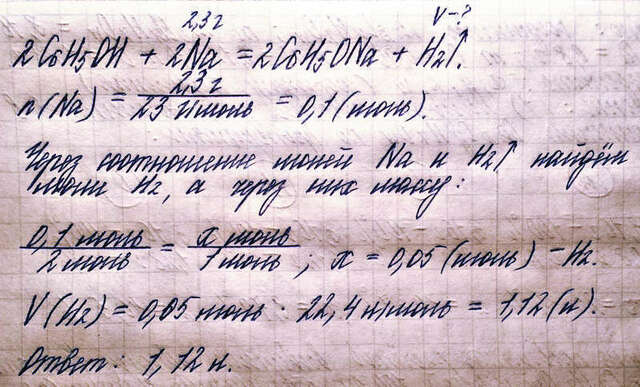 2,3г V-?
2C6H5OH + 2Na = 2C6H5ONa + H2↑.
n(Na) = 2,3г / 23 г/моль = 0,1 (моль).
Через соотношение молей Na и H2↑ найдём
моли H2, а через них массу:
0,1 моль / 2 моль = x моль / 1 моль ; x = 0,05 (моль) - H2.
V(H2) = 0,05 моль · 22,4 л/моль = 1,12 (л).
Ответ: 1,12 л.